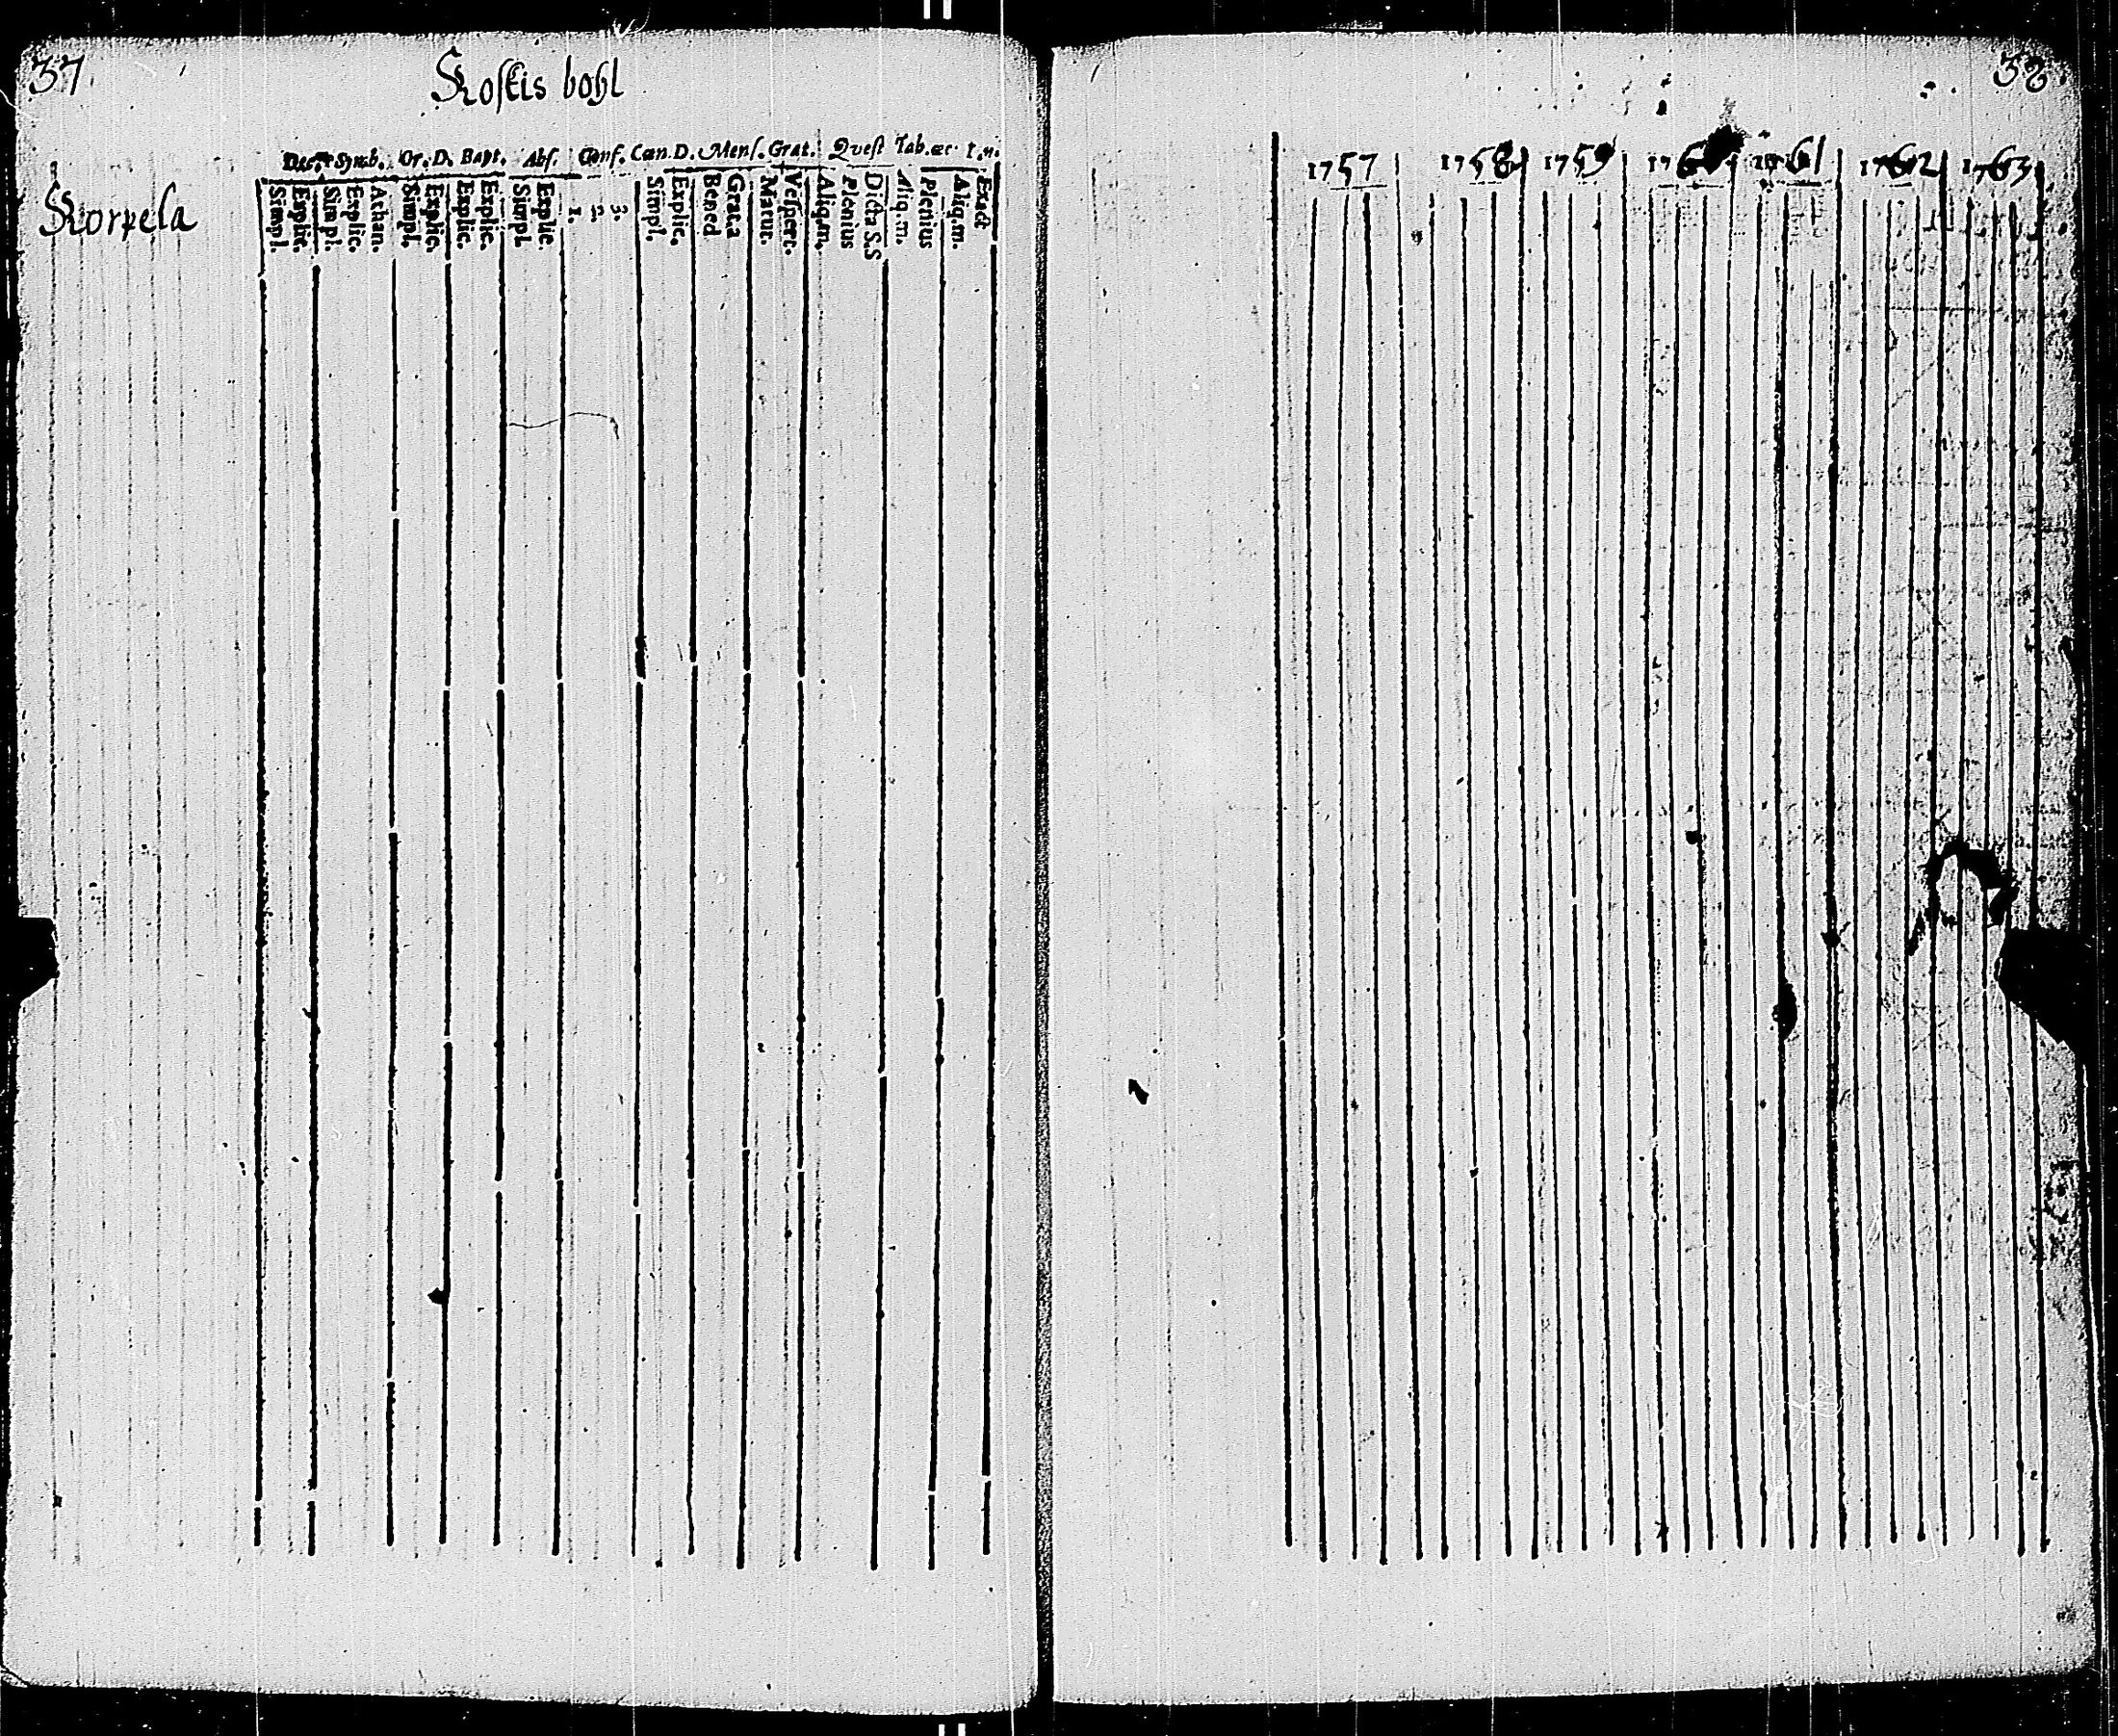 37
Koskis bohl
Dec. Symb. Or. D. Bapt. Abs. Conf. Cœn. D. Mens. Grat. Qvest Tab. œc. I. n.
Simpl. Explic. Simpl. Explic. Athan. Simpl. Explic. Explic. Explic. Simpl Explic. 1. 2 3 Simpl. Explic. Bened Grat.a Matut. Vespert. Aliq.m. Plenius Dicta S.S Aliq.m. Plenius Aliq.m. Exact
Korpela
38
1757 1758 1759 1761 1762 1763